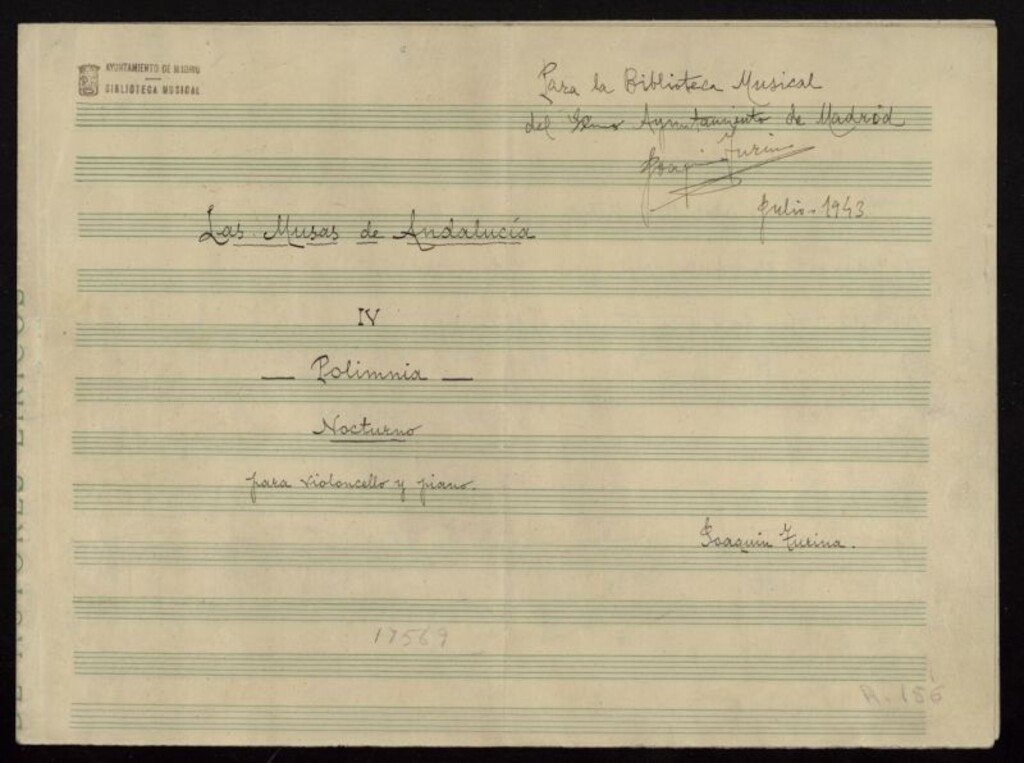 AYUNTAMIENTO DE MADRID
BIBLIOTECA MUSICAL
Para la Biblioteca Musical
del Ayuntamiento de Madrid
Joaquin Turina
Julio - 1943
Las Musas de Andalucía
IV
— Polimnia —
Nocturno
para violoncello y piano.
Joaquin Turina.
17569
A. 156